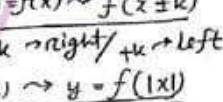 =f(x) ⤳ f(x±k)
k →right/+k→left
) ⤳ y = f(|x|)